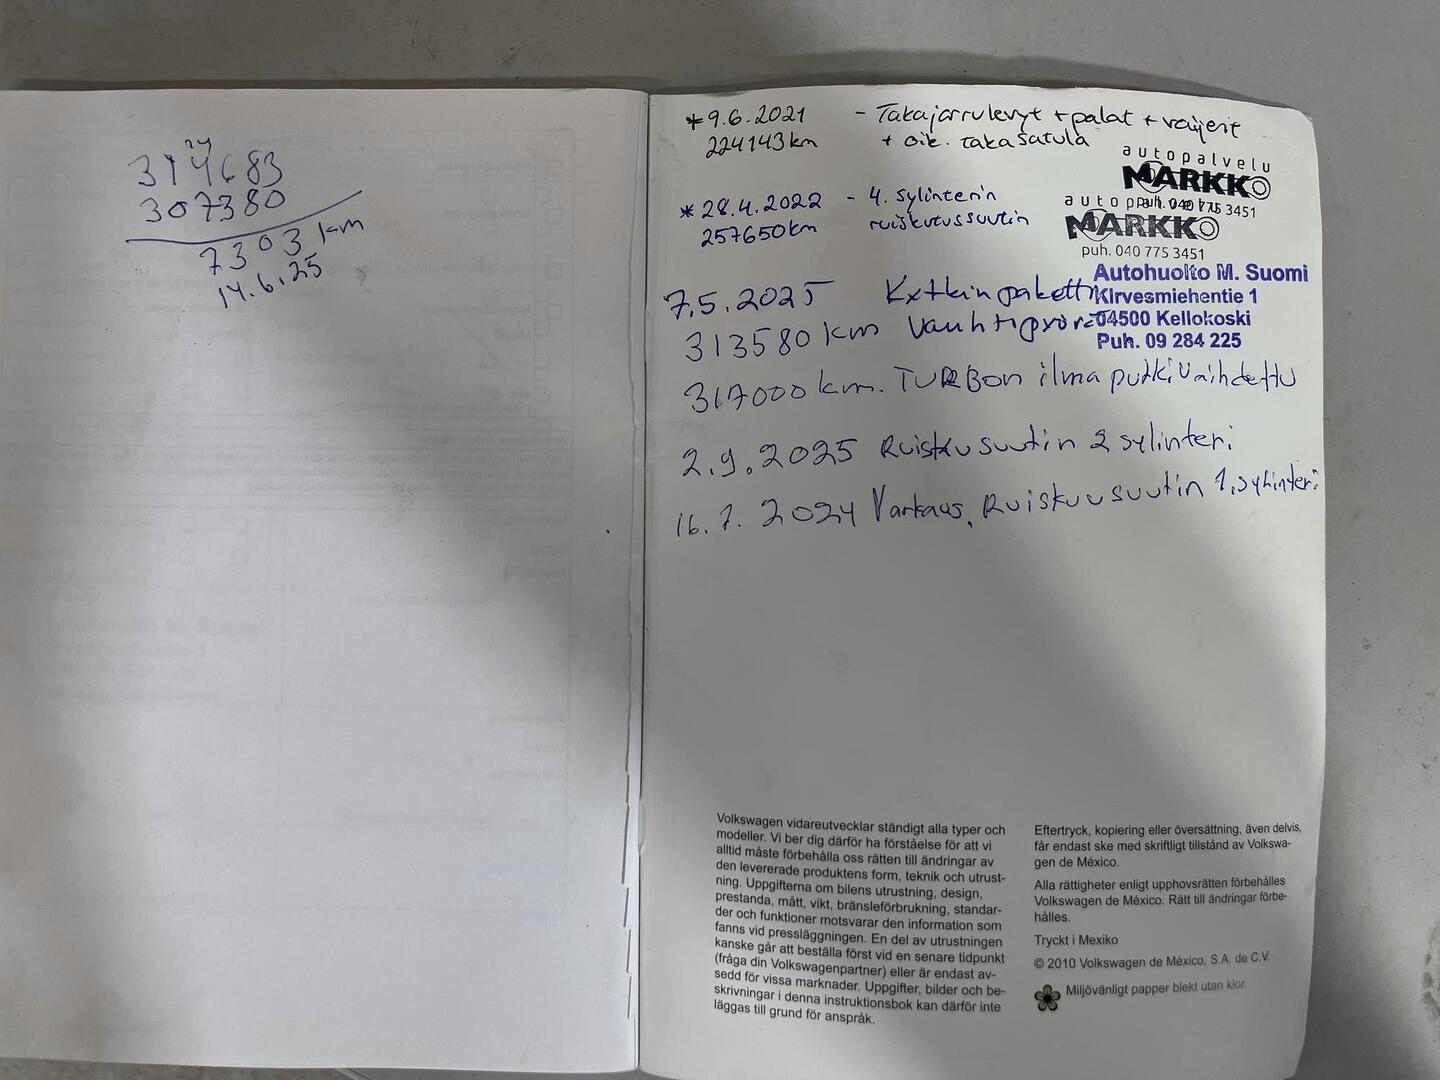 314683
307380
7303 km
14.6.25
*9.6.2021 - Takajarrulevyt + palat + vaijerit
224143 km + oik. takasatula
autopalvelu
MARKKO
puh. 040 775 3451
*28.4.2022 - 4. sylinterin
257650 km ruiskutussuutin
autopalvelu
MARKKO
puh. 040 775 3451
Autohuolto M. Suomi
Kirvesmiehentie 1
04500 Kellokoski
Puh. 09 284 225
7.5.2025 Kytkinpaketti
313580 km Vauhtipyörä
317000 km. TURBON ilmaputki vaihdettu
2.9.2025 Ruiskusuutin 2 sylinteri
16.7.2024 Varkaus, Ruiskuusuutin 1.sylinteri
Volkswagen vidareutvecklar ständigt alla typer och
modeller. Vi ber dig därför ha förståelse för att vi
alltid måste förbehålla oss rätten till ändringar av
den levererade produktens form, teknik och utrust-
ning. Uppgifterna om bilens utrustning, design,
prestanda, mått, vikt, bränsleförbrukning, standar-
der och funktioner motsvarar den information som
fanns vid pressläggningen. En del av utrustningen
kanske går att beställa först vid en senare tidpunkt
(fråga din Volkswagenpartner) eller är endast av-
sedd för vissa marknader. Uppgifter, bilder och be-
skrivningar i denna instruktionsbok kan därför inte
läggas till grund för anspråk.
Eftertryck, kopiering eller översättning, även delvis,
får endast ske med skriftligt tillstånd av Volkswa-
gen de México.
Alla rättigheter enligt upphovsrätten förbehålles
Volkswagen de México. Rätt till ändringar förbe-
hålles.
Tryckt i Mexiko
© 2010 Volkswagen de México, S.A. de C.V.
Miljövänligt papper blekt utan klor.